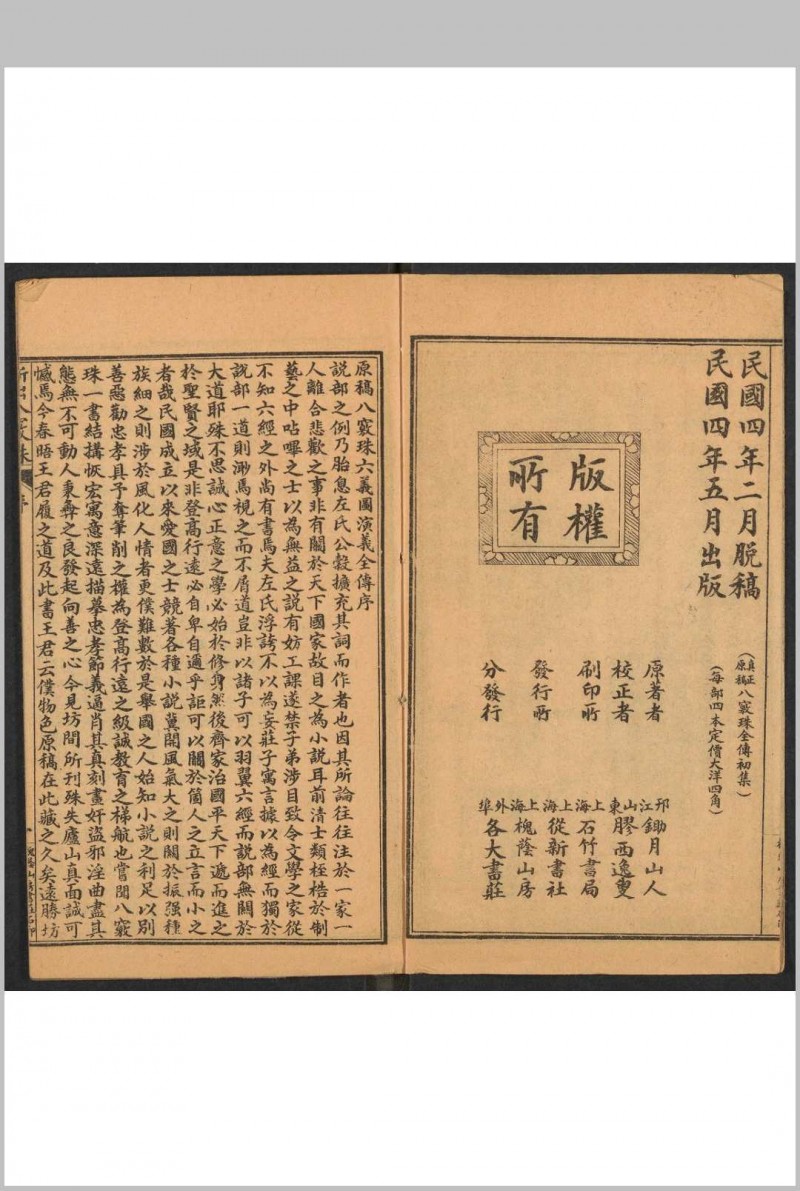 民國四年二月脫稿
民國四年五月出版
(真正原稿八竅珠全傳初集)
(每部四本定價大洋四角)
版權
所有
原著者 邗江鋤月山人
校正者 山東膠西逸叟
刷印所 上海石竹書局
發行所 上海從新書社
上海槐蔭山房
分發行 外埠各大書莊
原稿八竅珠六義國演義全傳序
說部之例乃胎息左氏公穀擴充其詞而作者也因其所論往往注於一家一
人離合悲歡之事非有關於天下國家故目之為小說耳前清士類桎梏於制
藝之中呫嗶之士以為無益之說有妨工課遂禁子弟涉目致令文學之家從
不知六經之外尚有書焉夫左氏浮誇不以為妄莊子寓言據以為經而獨於
說部一道則渺焉視之而不屑道豈非以諸子可以羽翼六經而說部無關於
大道耶殊不思誠心正意之學必始於修身然後齊家治國平天下遞而進之
於聖賢之域是非登高行遠必自卑自邇乎詎可以關於箇人之立言而小之
者哉民國成立以來愛國之士競著各種小說冀開風氣大之則關於振强種
族細之則涉於風化人情者更僕難數於是舉國之人始知小說之利足以別
善惡勸忠孝具予奪筆削之權為登高行遠之級誠教育之梯航也嘗聞八竅
珠一書結搆恢宏寓意深遠描摹忠孝節義逼肖其真刻畫奸盜邪淫曲盡其
態無不可動人秉彝之良發起向善之心今見坊間所刊殊失廬山真面誠可
憾焉今春晤王君履之道及此書王君云僕物色原稿在此藏之久矣遠勝坊